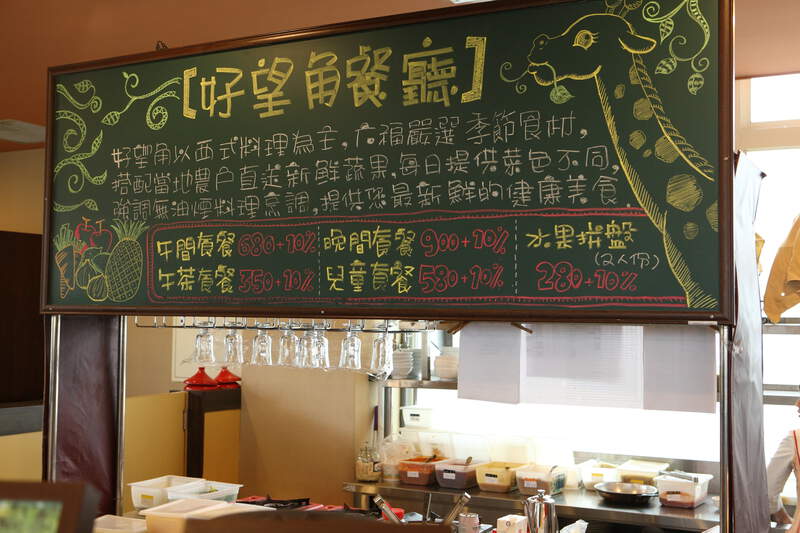 [好望角餐廳]
好望角以西式料理為主,广福嚴選季節食材,
搭配當地農戶直送新鮮蔬果,每日提供菜色不同,
強調無油煙料理烹調,提供您最新鮮的健康美食.
午間套餐 680+10% 晚間套餐 900+10% 水果拼盤
(2人份)
午茶套餐 350+10% 兒童套餐 580+10% 280+10%